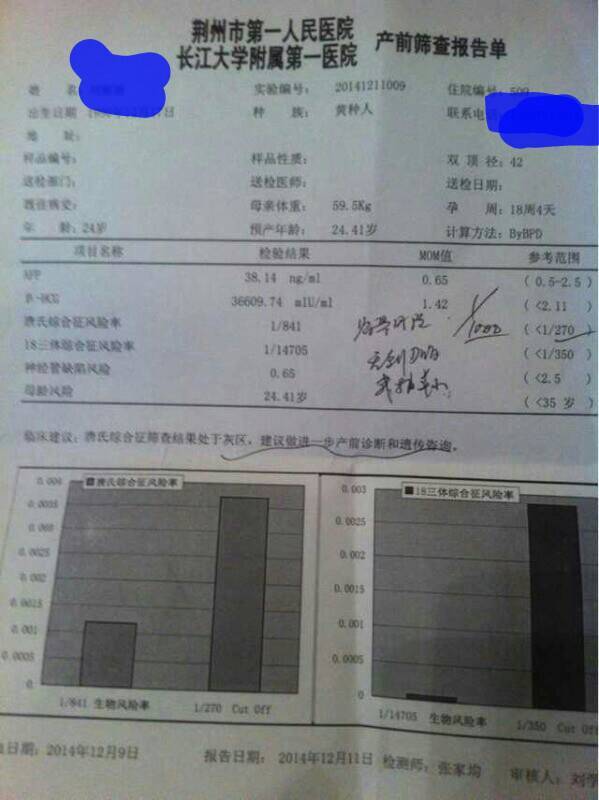 荆州市第一人民医院
长江大学附属第一医院 产前筛查报告单
姓 名 实验编号: 20141211009 住院编号: 509
出生日期 种 族: 黄种人 联系电话
地 址:
样品编号: 样品性质: 双顶径: 42
送检部门: 送检医师: 送检日期:
既往病史: 母亲体重: 59.5Kg 孕 周: 18周4天
年 龄: 24岁 预产年龄: 24.41岁 计算方法: ByBPD
项目名称 检验结果 MOM值 参考范围
AFP 38.14 ng/ml 0.65 ( 0.5-2.5 )
β-HCG 36609.74 mIU/ml 1.42 ( <2.11 )
唐氏综合征风险率 1/841 1/1000 ( <1/270 )
18三体综合征风险率 1/14705 ( <1/350 )
神经管缺陷风险 0.65 ( <2.5 )
母龄风险 24.41岁 ( <35 岁 )
临床建议: 唐氏综合征筛查结果处于灰区, 建议做进一步产前诊断和遗传咨询。
唐氏综合征风险率
0.0035
0.0025
0.002
0.0015
0.001
0.0005
0
1/841 生物风险率 1/270 Cut Off
18三体综合征风险率
0.003
0.0025
0.002
0.0015
0.001
0.0005
0
1/14705 生物风险率 1/350 Cut Off
日期: 2014年12月9日 报告日期: 2014年12月11日 检测师: 张家均 审核人: 刘学